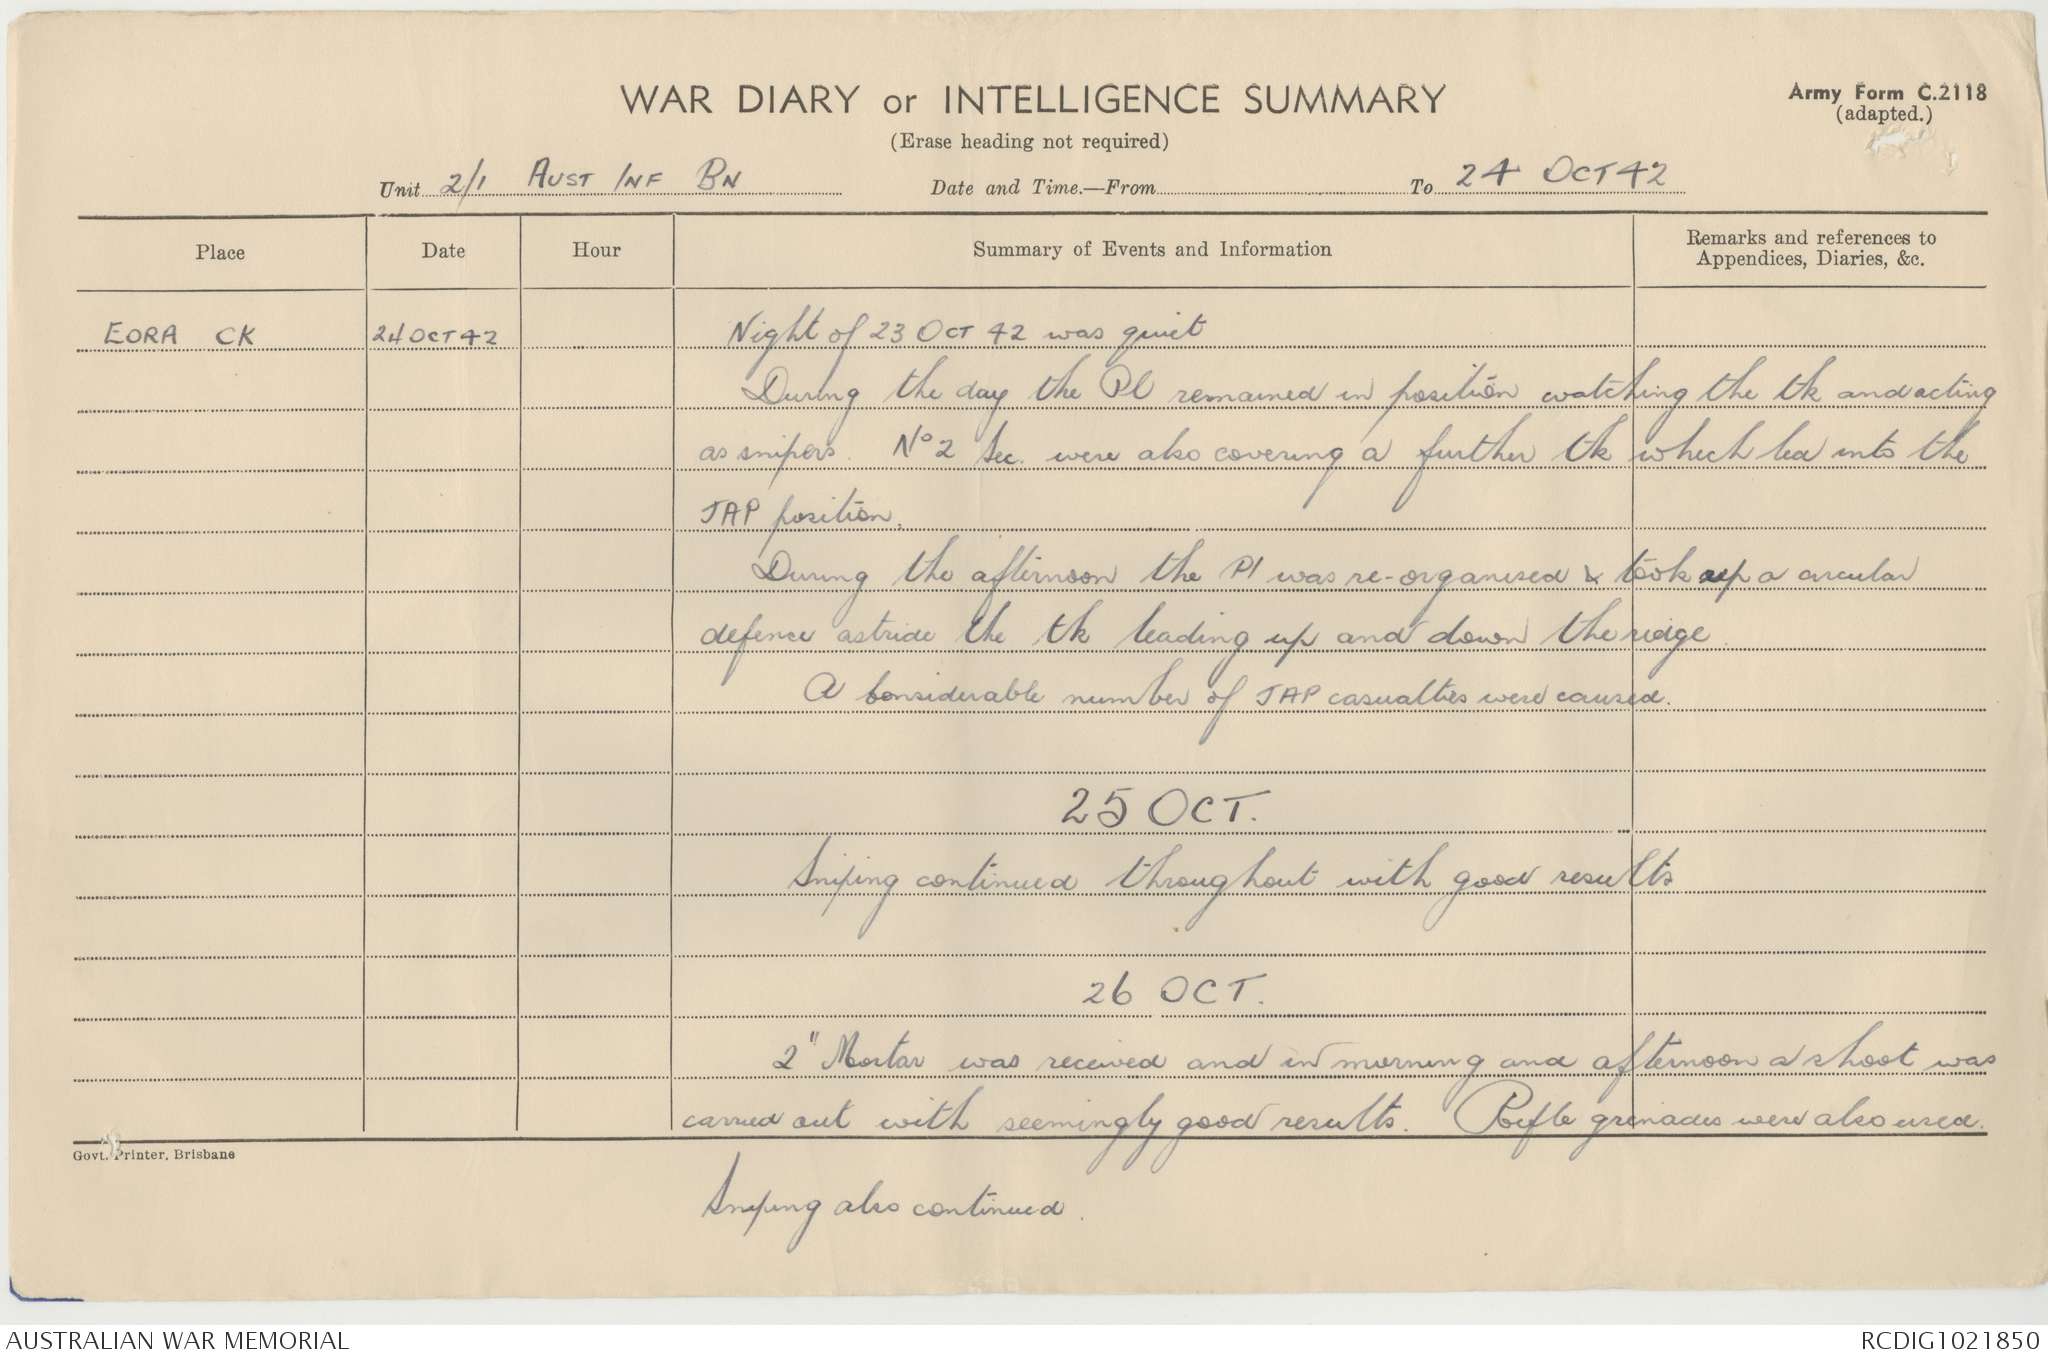 WAR DIARY or INTELLIGENCE SUMMARY
Army Form C.2118
(adapted.)
(Erase heading not required)
Unit 2/1 AUST INF BN Date and Time.—From To 24 OCT 42
Place Date Hour Summary of Events and Information Remarks and references to
Appendices, Diaries, &c.
EORA CK 24 OCT 42 Night of 23 OCT 42 was quiet
During the day the Pl remained in position watching the tk and acting
as snipers. No 2 Sec. were also covering a further tk which led into the
JAP position.
During the afternoon the Pl was re-organised & took up a circular
defence astride the tk leading up and down the ridge.
A considerable number of JAP casualties were caused.
25 OCT.
Sniping continued throughout with good results
26 OCT.
2" Mortar was received and in morning and afternoon a shoot was
carried out with seemingly good results. Rifle grenades were also used.
Govt. Printer, Brisbane
Sniping also continued.
AUSTRALIAN WAR MEMORIAL
RCDIG1021850